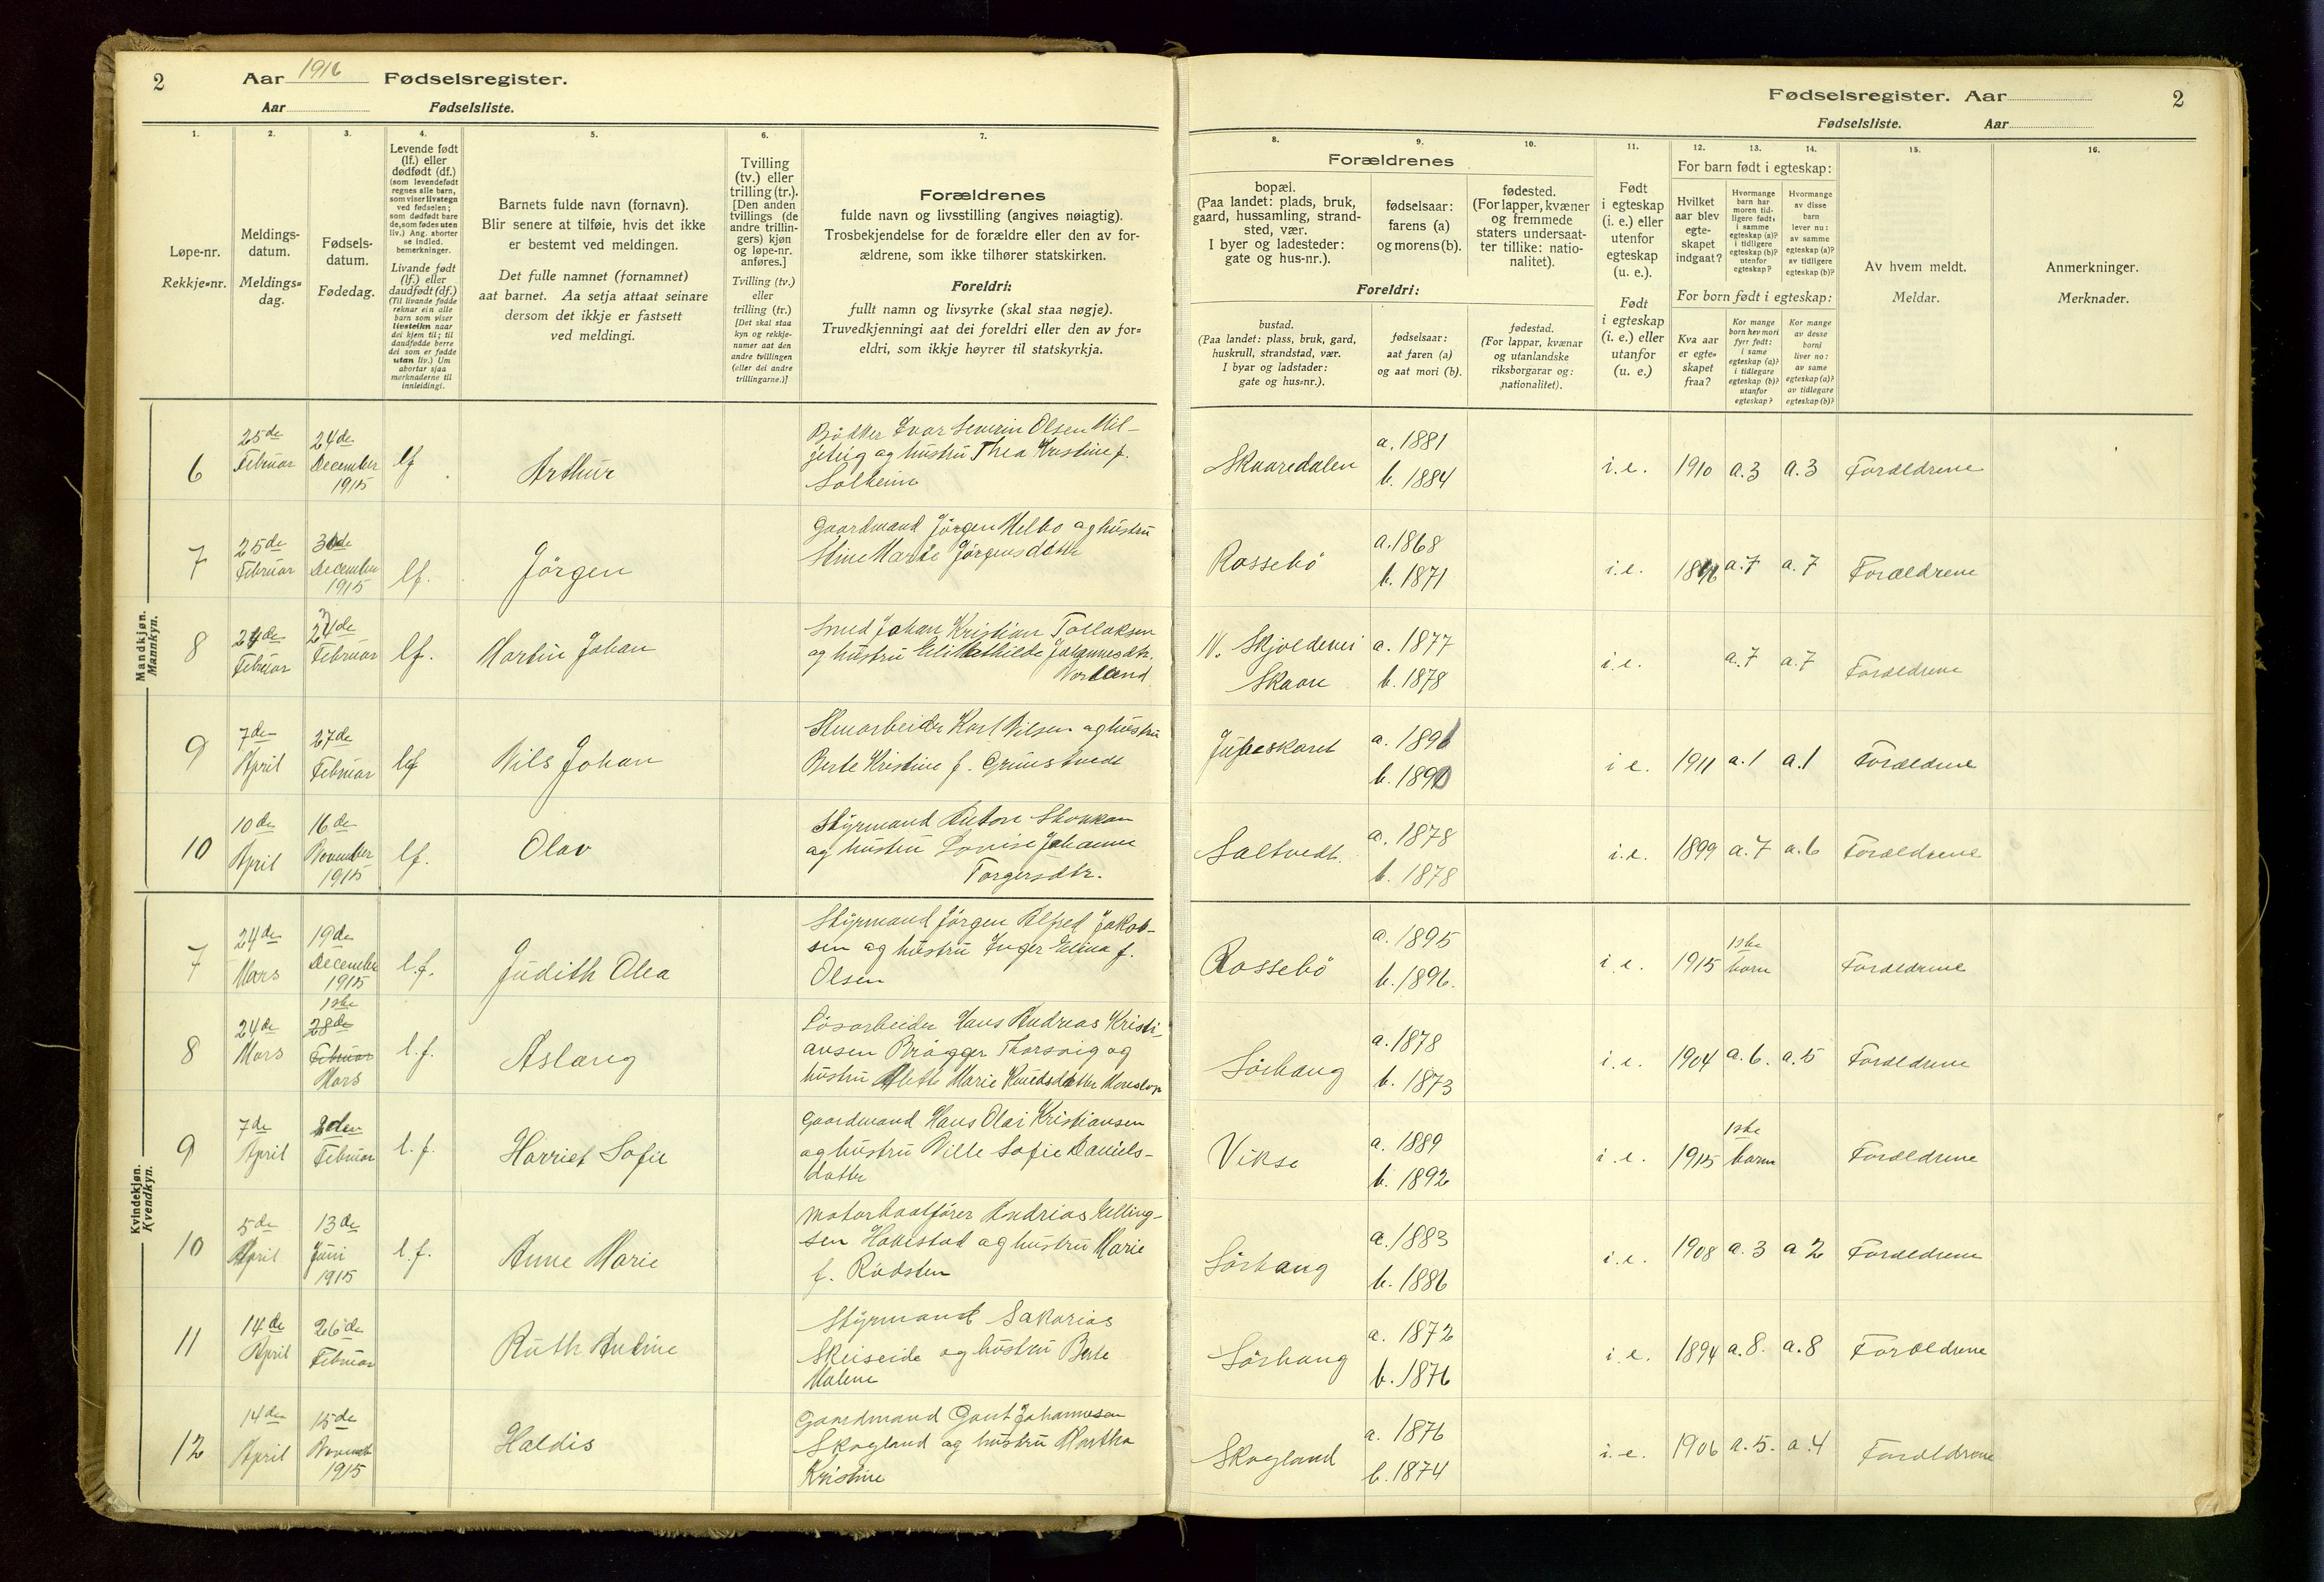 2 Aar 1916 Fødselsregister.
Aar Fødselsliste.
Fødselsregister. Aar 2
Fødselsliste. Aar
1. 2. 3. 4. 5. 6. 7.
Løpe-nr.
Rekkje-nr.
Meldings-
datum.
Meldings-
dag.
Fødsels-
datum.
Fødedag.
Levende født
(lf.) eller
dødfødt (df.)
(som levendefødt
regnes alle barn,
som viser livstegn
ved fødselen;
som dødfødt bare
de, som fødes uten
liv.) Ang. aborter
se indled.
bemerkninger.
Livande født
(lf.) eller
daudfødt (df.)
(Til livande fødde
reknar ein alle
barn som viser
livsteikn naar
dei kjem til; til
daudfødde berre
dei som er fødde
utan liv.) Um
abortar sjaa
merknaderne til
innleidingi.
Barnets fulde navn (fornavn).
Blir senere at tilføie, hvis det ikke
er bestemt ved meldingen.
Det fulle namnet (fornamnet)
aat barnet. Aa setja attaat seinare
dersom det ikkje er fastsett
ved meldingi.
Tvilling
(tv.) eller
trilling (tr.).
[Den anden
tvillings (de
andre trillin-
gers) kjøn
og løpe-nr.
anføres.]
Tvilling (tv.)
eller
trilling (tr.)
[Det skal staa
kyn og rekkje-
numer aat den
andre tvillingen
(eller dei andre
trillingarne.)]
Forældrenes
fulde navn og livsstilling (angives nøiagtig).
Trosbekjendelse for de forældre eller den av for-
ældrene, som ikke tilhører statskirken.
Foreldri:
fullt namn og livsyrke (skal staa nøgje).
Truvedkjenningi aat dei foreldri eller den av for-
eldri, som ikkje høyrer til statskyrkja.
8. 9. 10. 11. 12. 13. 14. 15. 16.
Forældrenes
bopæl.
(Paa landet: plads, bruk,
gaard, hussamling, strand-
sted, vær.
I byer og ladesteder:
gate og hus-nr.).
fødselsaar:
farens (a)
og morens (b).
fødested.
(For lapper, kvæner
og fremmede
staters undersaat-
ter tillike: natio-
nalitet).
Foreldri:
bustad.
(Paa landet: plass, bruk, gard,
huskrull, strandstad, vær.
I byar og ladstader:
gate og hus-nr.).
fødselsaar:
aat faren (a)
og aat mori (b).
fødestad.
(For lappar, kvænar
og utanlandske
riksborgarar og:
nationalitet).
Født
i egteskap
(i. e.) eller
utenfor
egteskap
(u. e.).
Født
i egteskap
(i. e.) eller
utanfor
(u. e.).
For barn født i egteskap:
Hvilket
aar blev
egte-
skapet
indgaat?
Hvormange
barn har
moren tid-
ligere født:
i samme
egteskap (a)?
i tidligere
egteskap (b)?
utenfor
egteskap?
Hvormange
av disse
barn
lever nu:
av samme
egteskap (a)?
av tidligere
egteskap (b)?
For born født i egteskap:
Kva aar
er egte-
skapet
fraa?
Kor mange
born hev mori
fyrr født:
i same
egteskap (a)?
i tidlegare
egteskap (b)?
utanfor
egteskap?
Kor mange
av desse
borni
liver no:
av same
egteskap (a)?
av tidlegare
egteskap (b)?
Av hvem meldt.
Meldar.
Anmerkninger.
Merknader.
Mandkjøn.
Mannkyn.
6 25de Februar 24de December 1915 lf Arthur
Bødker Ivar Severin Olsen Mil-
jeteig og hustru Thea Kristine f.
Solheim
Skaaredalen a. 1881 b. 1884 i.e. 1910 a.3 a.3 Forældrene
7 25de Februar December 1915 lf. Jörgen
Gaardmand Jörgen Helbo og hustru
Stine Marte Jörgensdatter
Rossebö a.1868 b. 1871 i.e. a.7 a.7 Forældrene
8 Februar Februar lf. Martin Johan
Smed Johan Kristian Tollaksen
og hustru Eli Mathilde Johannesdtr.
Norland
N. Skjoldevei
Skaare a. 1877 b. 1878 i.e. a.7 a.7 Forældrene
9 7de April 27de Februar lf Nils Johan
Stuarbeider Karl Nilsen og hustru
Berte Kristine f. Grimstvedt
Jupeskaret a. 1891 b. 1890 i e. 1911 a.1 a.1 Forældrene
10 10de April 16de November 1915 lf. Olav
Styrmand Anton Stokkan
og hustru Lovise Johanne
Torgersdtr.
Saltvedt. a. 1878 b. 1878 i.e. 1899 a.7 a.6 Forældrene
Kvindekjøn.
Kvendkyn.
7 24de Mars 19de December 1915 l.f. Judith Olea
Styrmand Jörgen Alfred Jakob-
sen og hustru Inger Elina f.
Olsen
Rossebö a. 1895 b. 1896. i.e. 1915 1ste barn Forældrene
8 24de Mars 1ste 28de Februar Mars l.f. Aslaug
Lösarbeider Hans Andreas Kristi-
ansen Brägger Thorsvig og
hustru Mette Marie Knudsdatter
Sörhaug a. 1878 b. 1873 i.e. 1904 a.6. a.5 Forældrene
9 7de April Februar l.f. Harriet Sofie
Gaardmand Hans Olai Kristiansen
og hustru Nille Sofie Daniels-
datter
Vikse a. 1889 b. 1892 i.e. 1915 1ste barn Forældrene
10 5de April 13de Juni 1915 l.f. Anne Marie
Motorbaatförer Andreas Elling-
sen Havestad og hustru Marie
f. Rødsten
Sörhaug a. 1883 b. 1886 i.e. 1908 a.3 a 2 Forældrene
11 14de April 26de Februar Ruth Andrine
Styrmand Sakarias
Skeiseide og hustru Berte
Malene
Sörhaug a. 1872 b. 1876 i.e. 1894 a.8. a.8 Forældrene
12 14de April 15de Novemb 1915 Haldis
Gaardmand Gaut Johannesen
Skogland og hustru Martha
Kristine
Skogland a. 1876 b. 1874 i.e. 1906 a.5. a.4 Forældrene